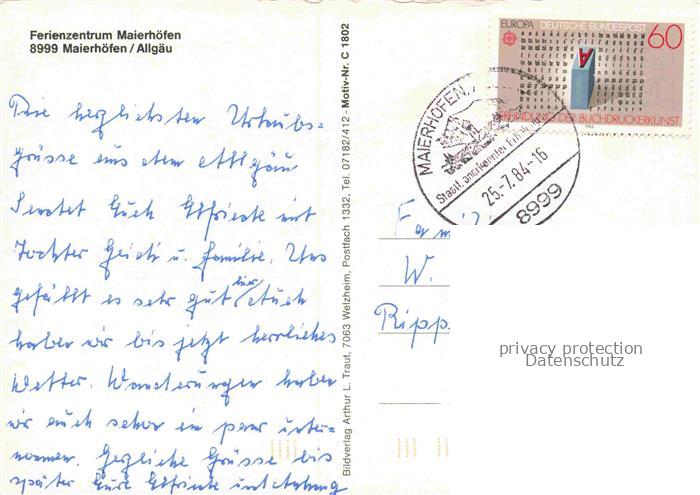 Ferienzentrum Maierhöfen
8999 Maierhöfen/Allgäu
Die herzlichsten Urlaubs=
grüsse aus dem Allgäu
Sendet Euch Elfriede mit
Tochter Heidi u. Familie. Uns
gefällt es sehr gut hier Auch
haben wir bis jetzt herrliches
Wetter. Wanderungen haben
wir auch schon ein paar unter=
nommen. Herzliche Grüsse bis
später Eure Elfriede und Anhang
Bildverlag Arthur L. Traut, 7063 Welzheim, Postfach 1332, Tel. 07182/412 - Motiv-Nr. C 1802
EUROPA DEUTSCHE BUNDESPOST 60
ERFINDUNG DER BUCHDRUCKERKUNST
MAIERHÖFEN,
Staatl. anerkannter
25.-7.84-16
8999
Fam
W.
Ripp
privacy protection
Datenschutz